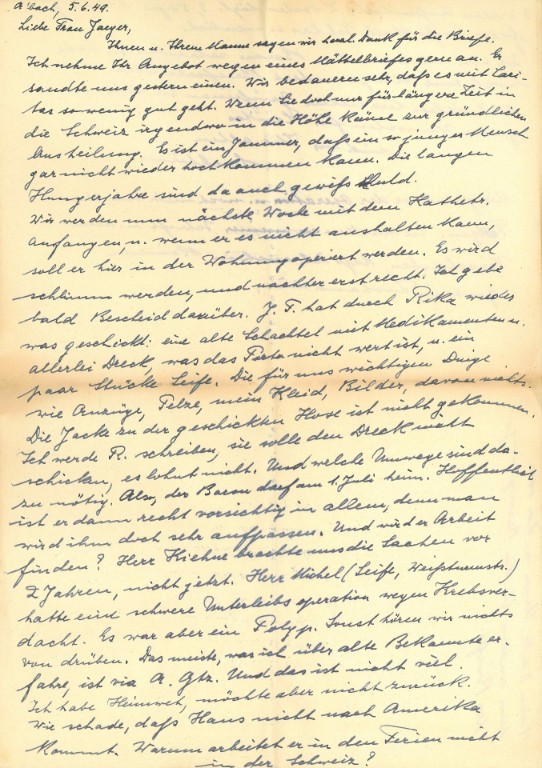 A'bach, 5.6.49.
Liebe Frau Jaeger,
Ihnen u. Ihrem Manne sagen wir herzl. Dank für die Briefe.
Ich nehme Ihr Angebot wegen eines gerne an. Er
sandte uns gestern einen. Wir bedauern sehr, daß es mit Cari-
tas so wenig gut geht. Wenn Sie doch nur für längere Zeit in
die Schweiz irgendwo in die Höhe käme zur gründlichen
Ausheilung. Es ist ein Jammer, daß ein so junger Mensch
gar nicht wieder hochkommen kann. Die langen
Hungerjahre sind da auch gewiß schuld.
Wir werden nun nächste Woche mit dem Kathetr.
anfangen, u. wenn er es nicht aushalten kann,
soll er hier in der Wohnung operiert werden. Es wird
schlimm werden, und nachher erst recht. Ich gebe
bald Bescheid darüber. J. F. hat durch Rika wieder
was geschickt: eine alte Schachtel mit Medikamenten u.
allerlei Dreck, was das Porto nicht wert ist, u. ein
paar Stücke Seife. Die für uns wichtigen Dinge
wie Anzüge, Pelze, mein Kleid, Bilder, davon nichts.
Die Jacke zu der geschickten Hose ist nicht gekommen.
Ich werde R. schreiben, sie solle den Dreck nicht
schicken, es lohnt nicht. Und welche Umwege sind da-
zu nötig. Also, der Baron darf am 1. Juli heim. Hoffentlich
ist er dann recht vorsichtig in allem, denn man
wird ihm doch sehr aufpassen. Und wird er Arbeit
finden? Herr Kiehne brachte uns die Sachen vor
2 Jahren, nicht jetzt. Herr Michel (Seife, Weißturmstr.)
hatte eine schwere Unterleibsoperation wegen Krebsver-
dacht. Es war aber ein Polyp. Sonst hören wir nichts
von drüben. Das meiste, was ich über alte Bekannte er-
fahre, ist via A. Gtz. Und das ist nicht viel.
Ich habe Heimweh, möchte aber nicht zurück.
Wie schade, daß Hans nicht nach Amerika
kommt. Warum arbeitet er in den Ferien nicht
in der Schweiz?